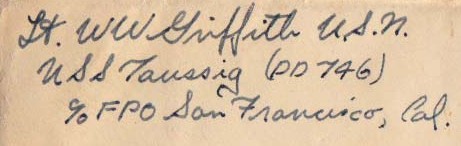 Lt. WW Griffith U.S.N.
USS Taussig (DD 746)
% FPO San Francisco, Cal.